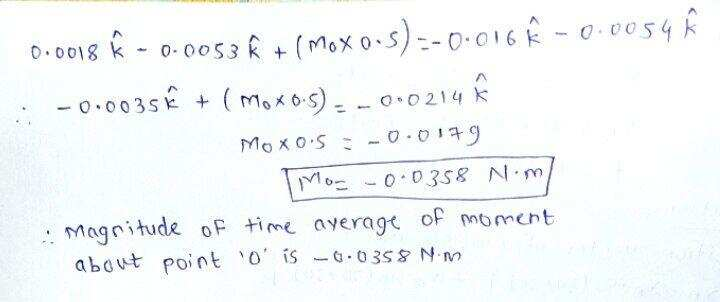 0.0018 k̂ - 0.0053 k̂ + (Mo x 0.5) = -0.016 k̂ - 0.0054 k̂
∴ -0.0035 k̂ + (Mo x 0.5) = -0.0214 k̂
Mo x 0.5 = -0.0179
Mo = -0.0358 N.m
∴ Magnitude of time average of moment
about point 'O' is -0.0358 N.m